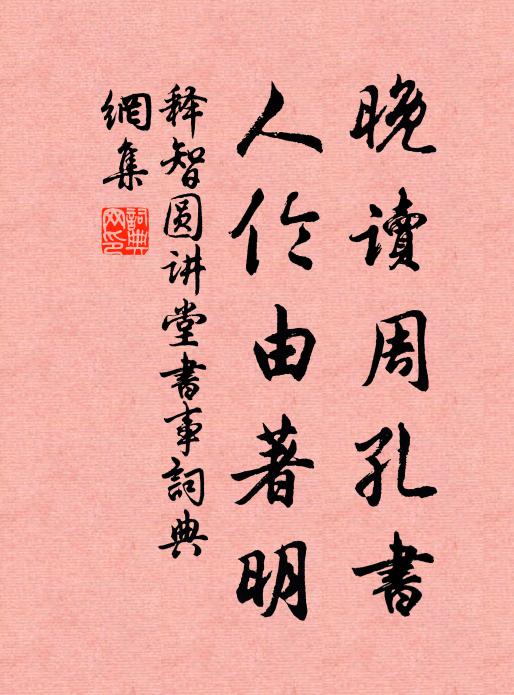 晚讀周孔書
人伦由著明
释智圆讲堂書事詞典
網集
詞典
网印